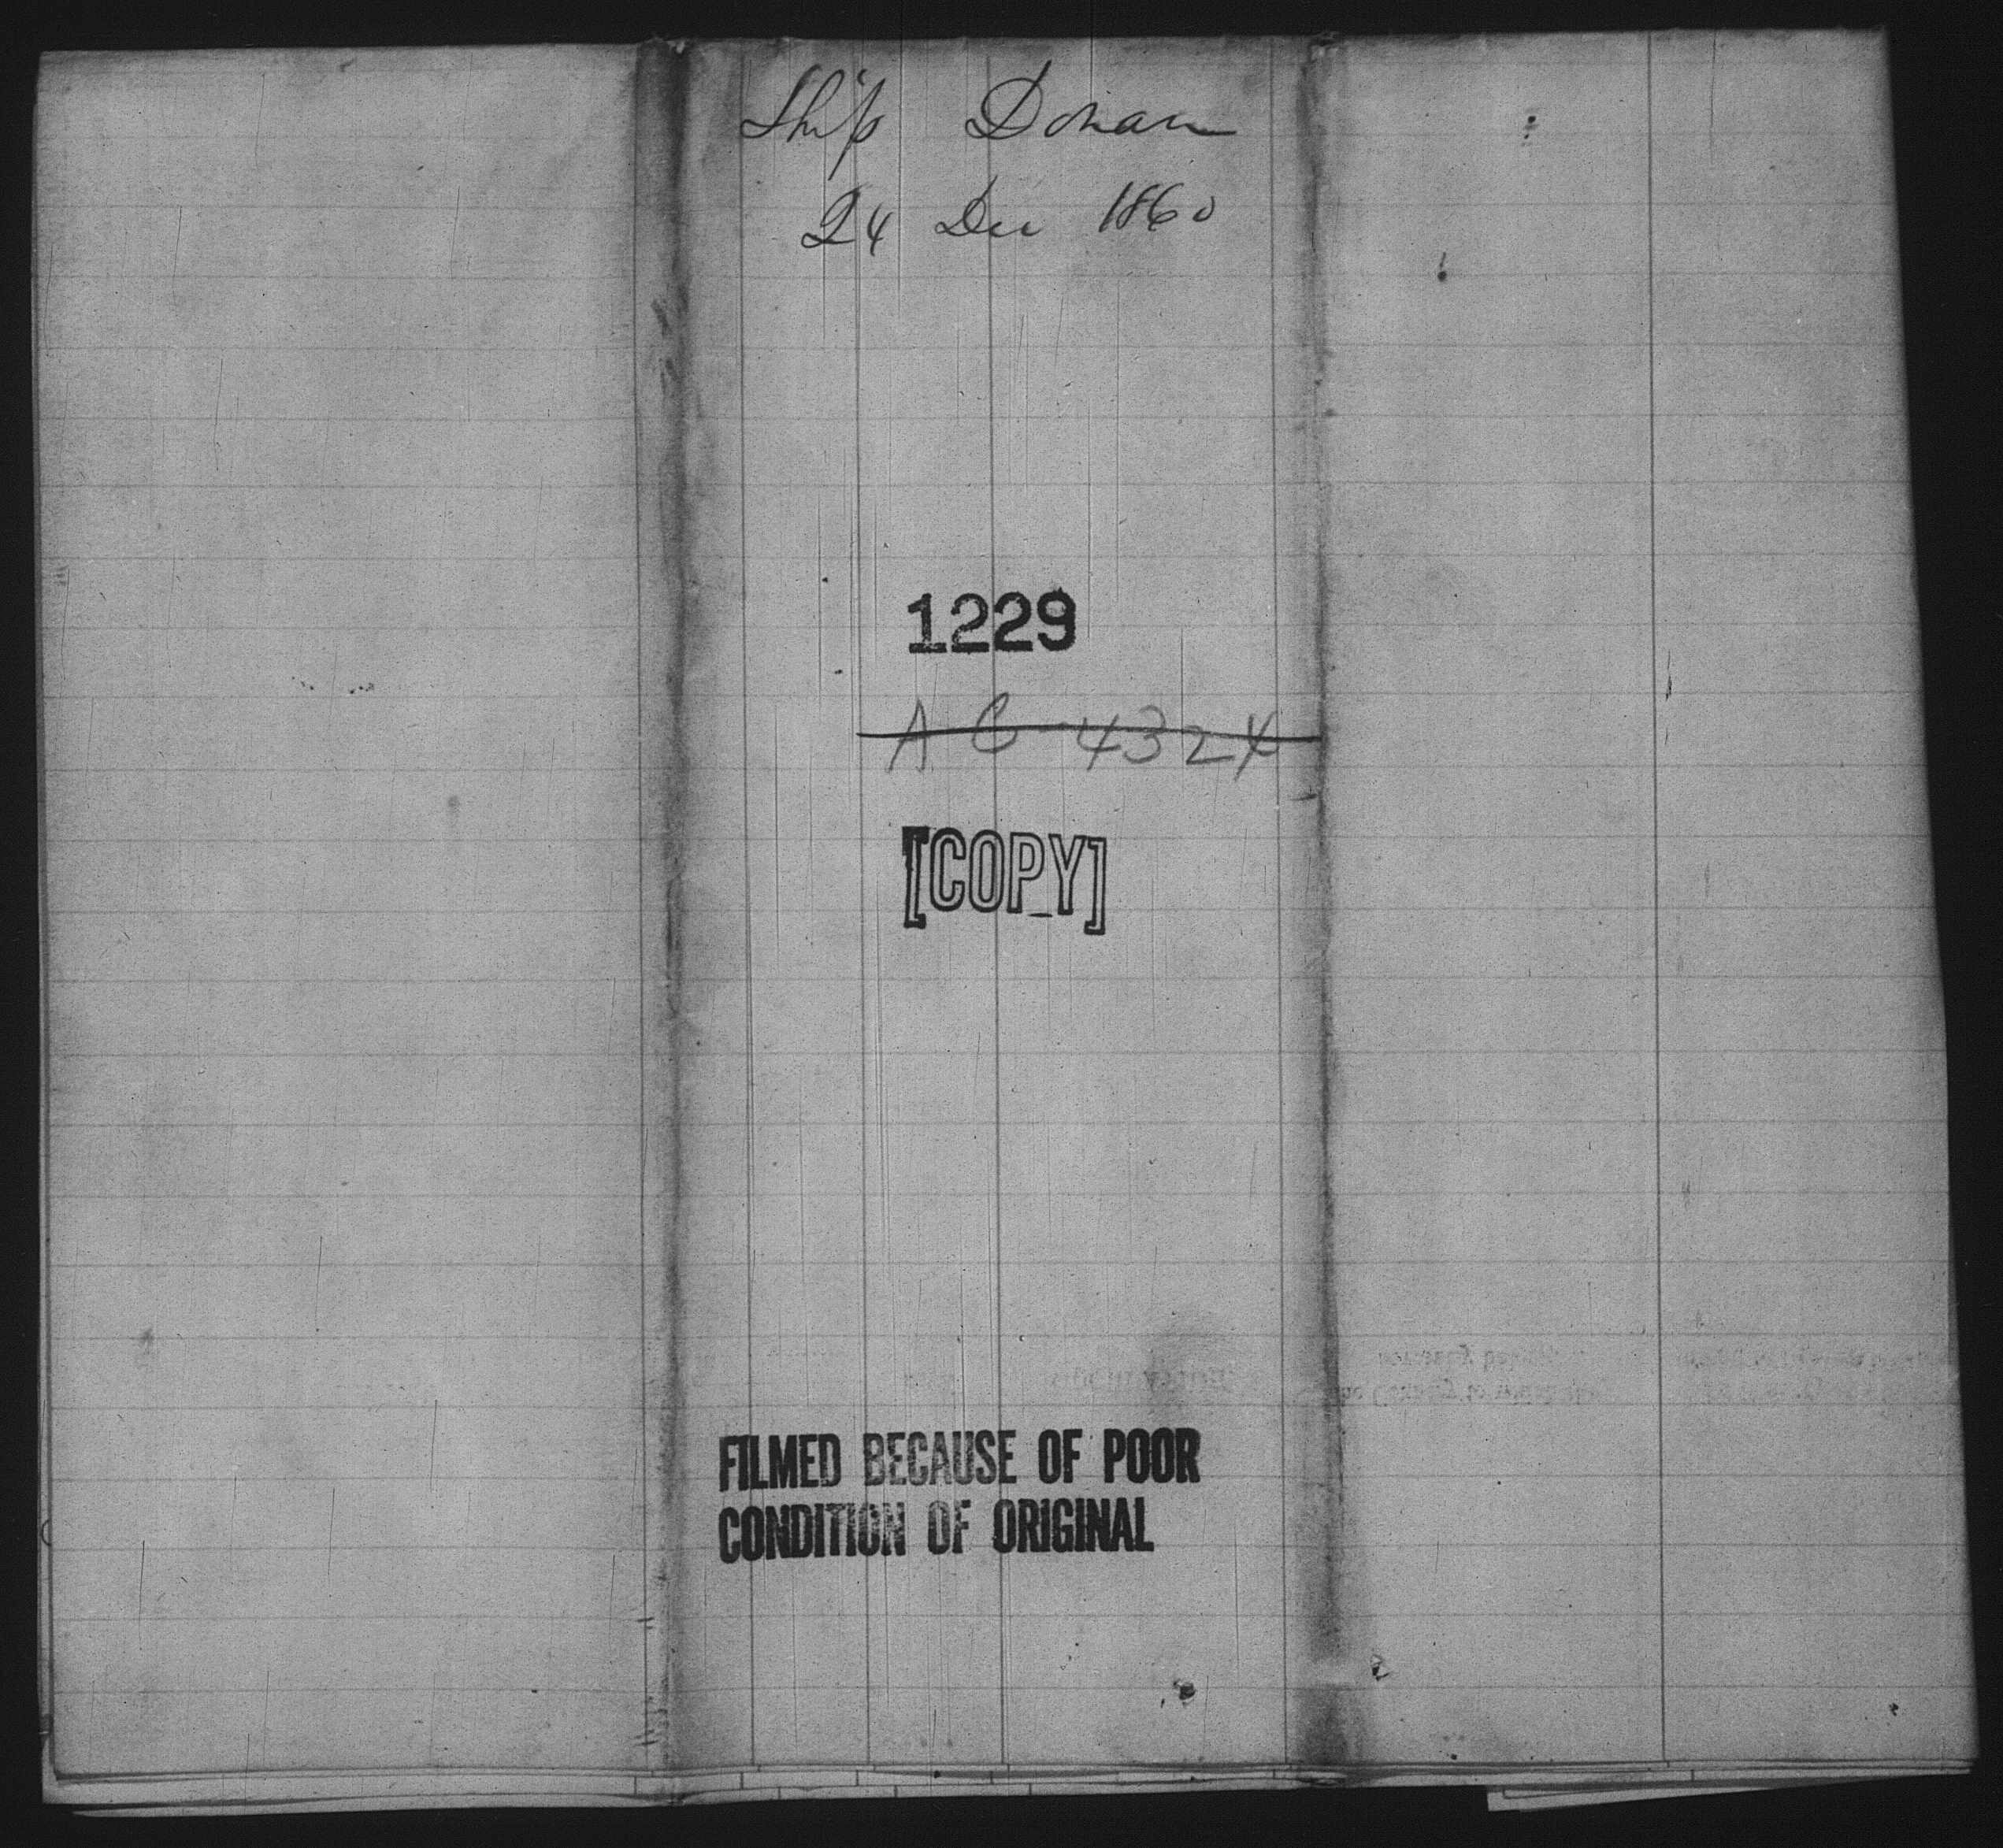 Ship Donau
24 Dec 1860
1229
A C 4324
[COPY]
FILMED BECAUSE OF POOR
CONDITION OF ORIGINAL